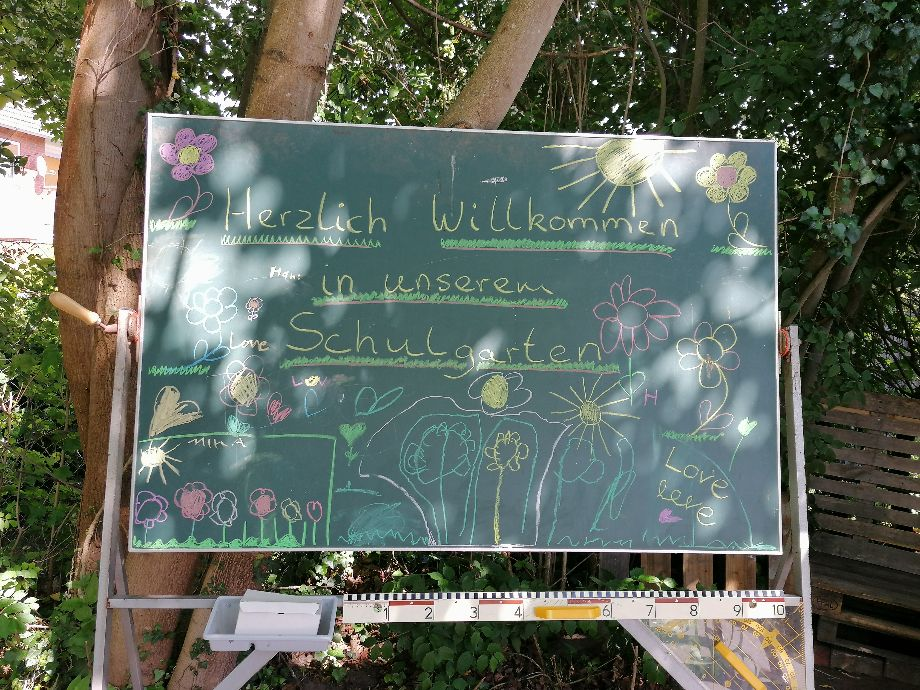 Herzlich Willkommen
in unserem
Schulgarten
Love
MINA
H
Love
1 2 3 4 5 6 7 8 9 10